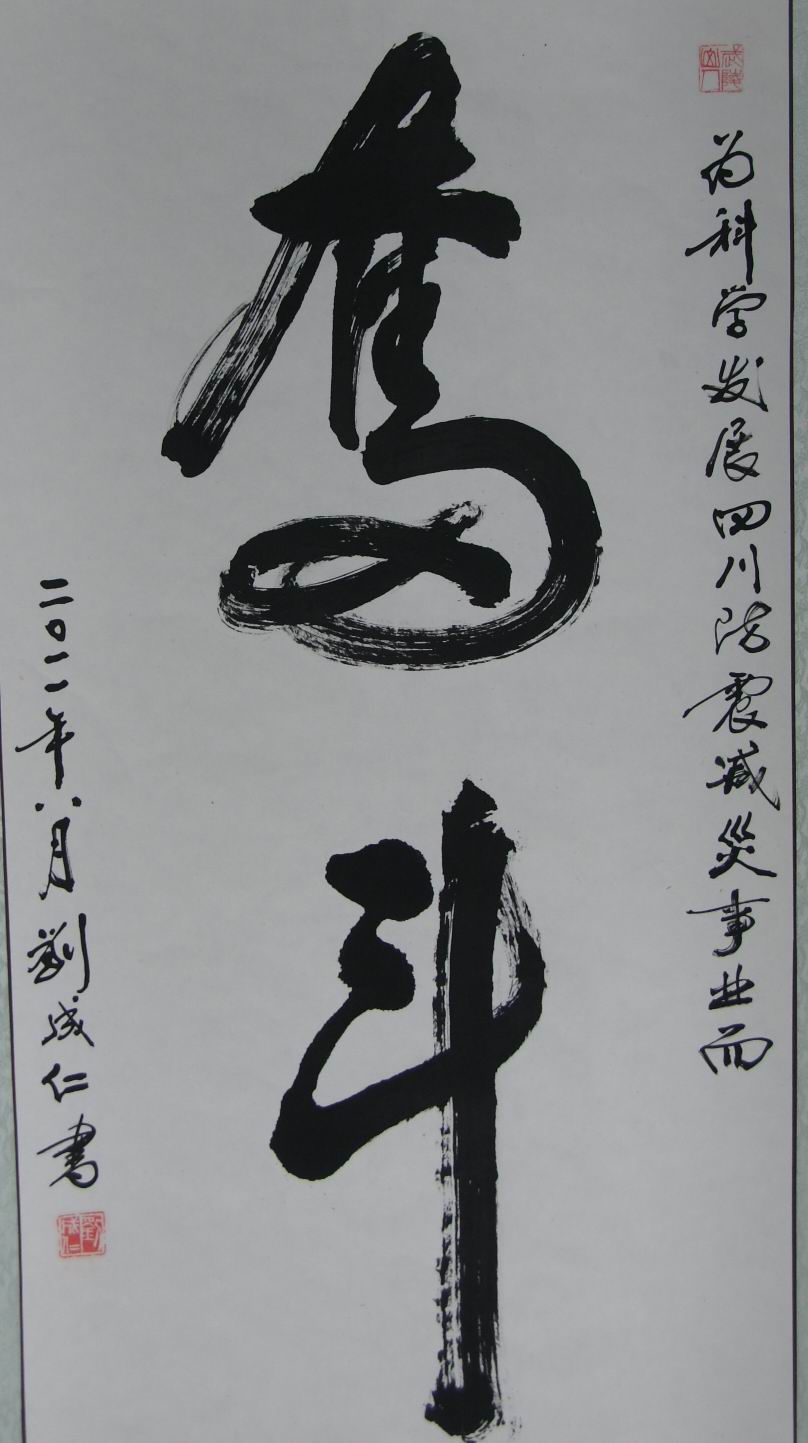 为科学发展四川防震减災事业而
奮斗
二〇一一年八月劉成仁書
劉成仁